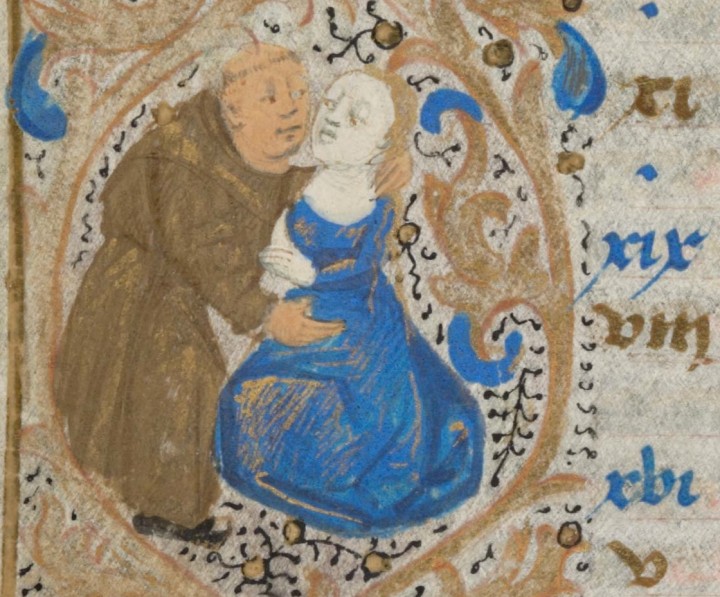 xi
xix
viij
xvi
v